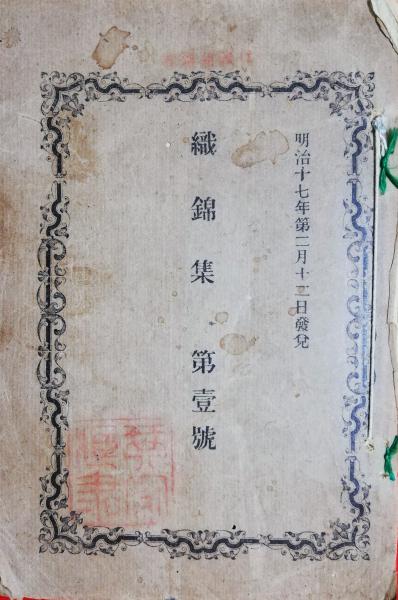 明治十七年第二月十二日發兌
織錦集 第壹號